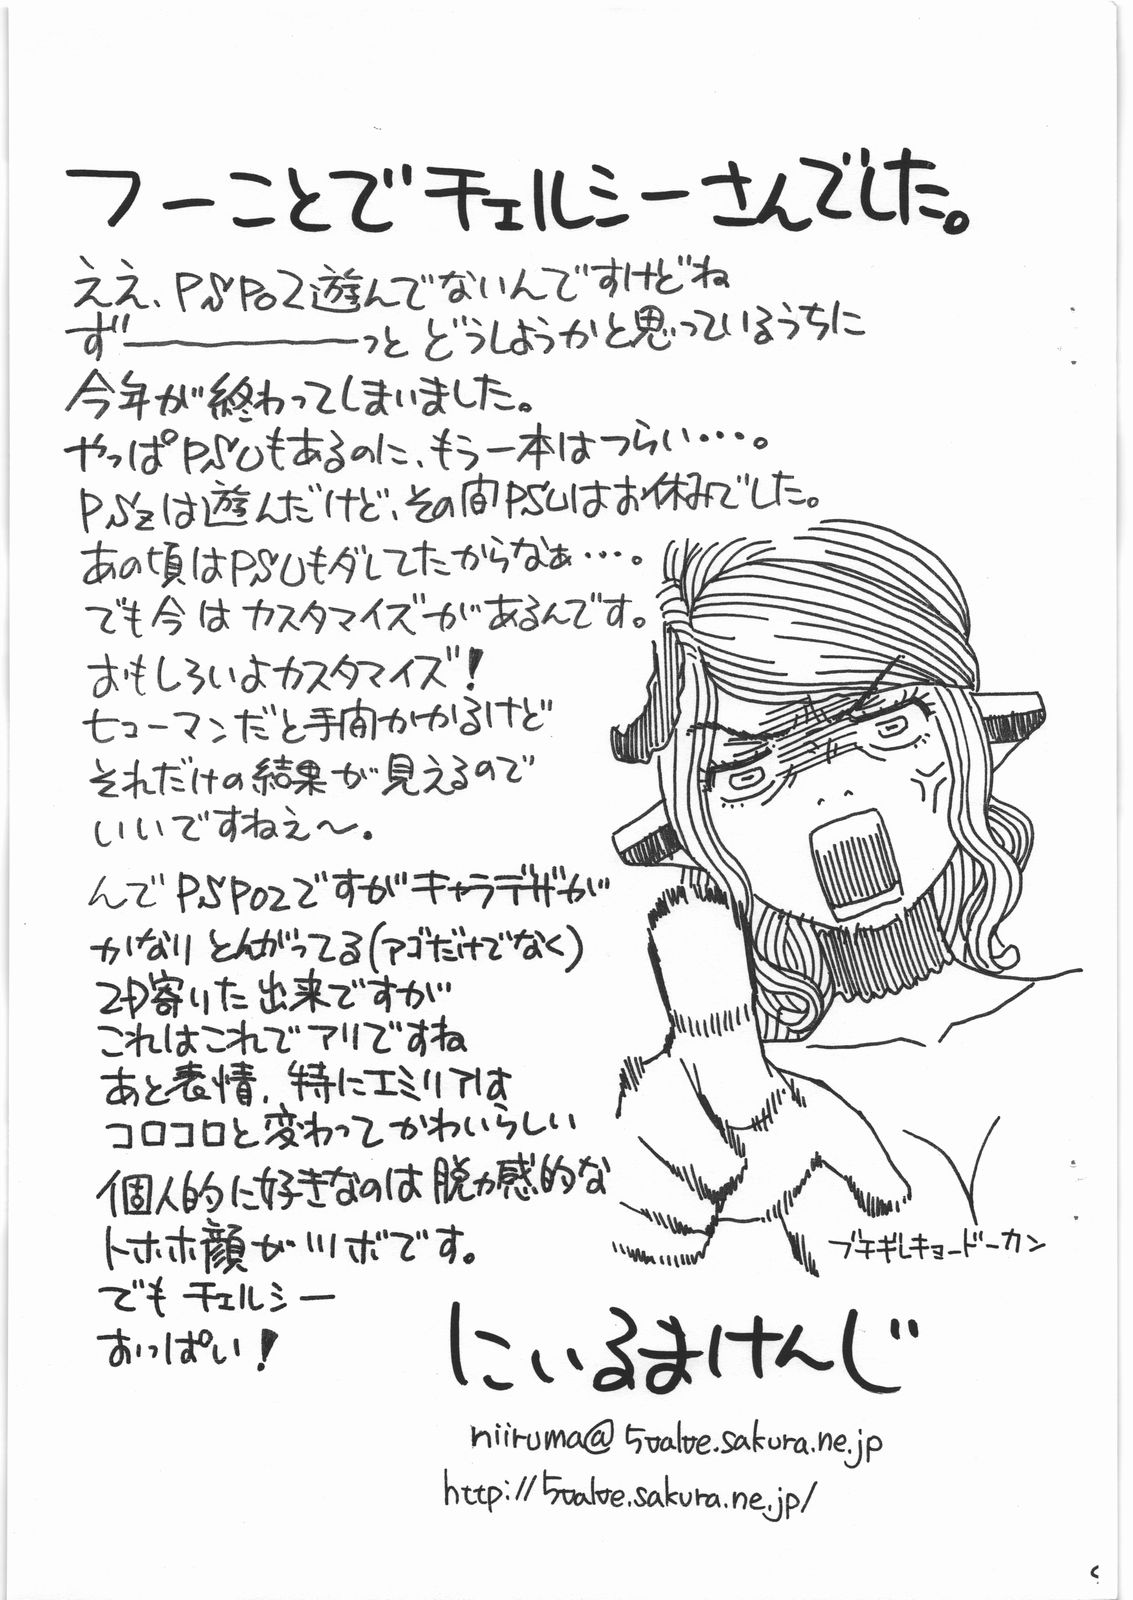 フーことでチェルシーさんでした。
ええ、PSPo2遊んでないんですけどね
ず――――――っと どうしようかと思っているうちに
今年が終わってしまいました。
やっぱPSUもあるのに、もう一本はつらい・・・。
PSZは遊んだけど、その間PSUはお休みでした。
あの頃はPSUもダレてたからなぁ・・・。
でも今はカスタマイズがあるんです。
おもしろいよカスタマイズ!
ヒューマンだと手間かかるけど
それだけの結果が見えるので
いいですねぇ～。
んでPSPo2ですがキャラデザが
かなりとんがってる(アゴだけでなく)
2D寄りた出来ですが
これはこれでアリですね
あと表情、特にエミリアは
コロコロと変わってかわいらしい
個人的に好きなのは脱力感的な
トホホ顔がツボです。
でも チェルシー
おっぱい!
ブチギレキョードーカン
にいるまけんじ
niiruma@5valve.sakura.ne.jp
http://5valve.sakura.ne.jp/